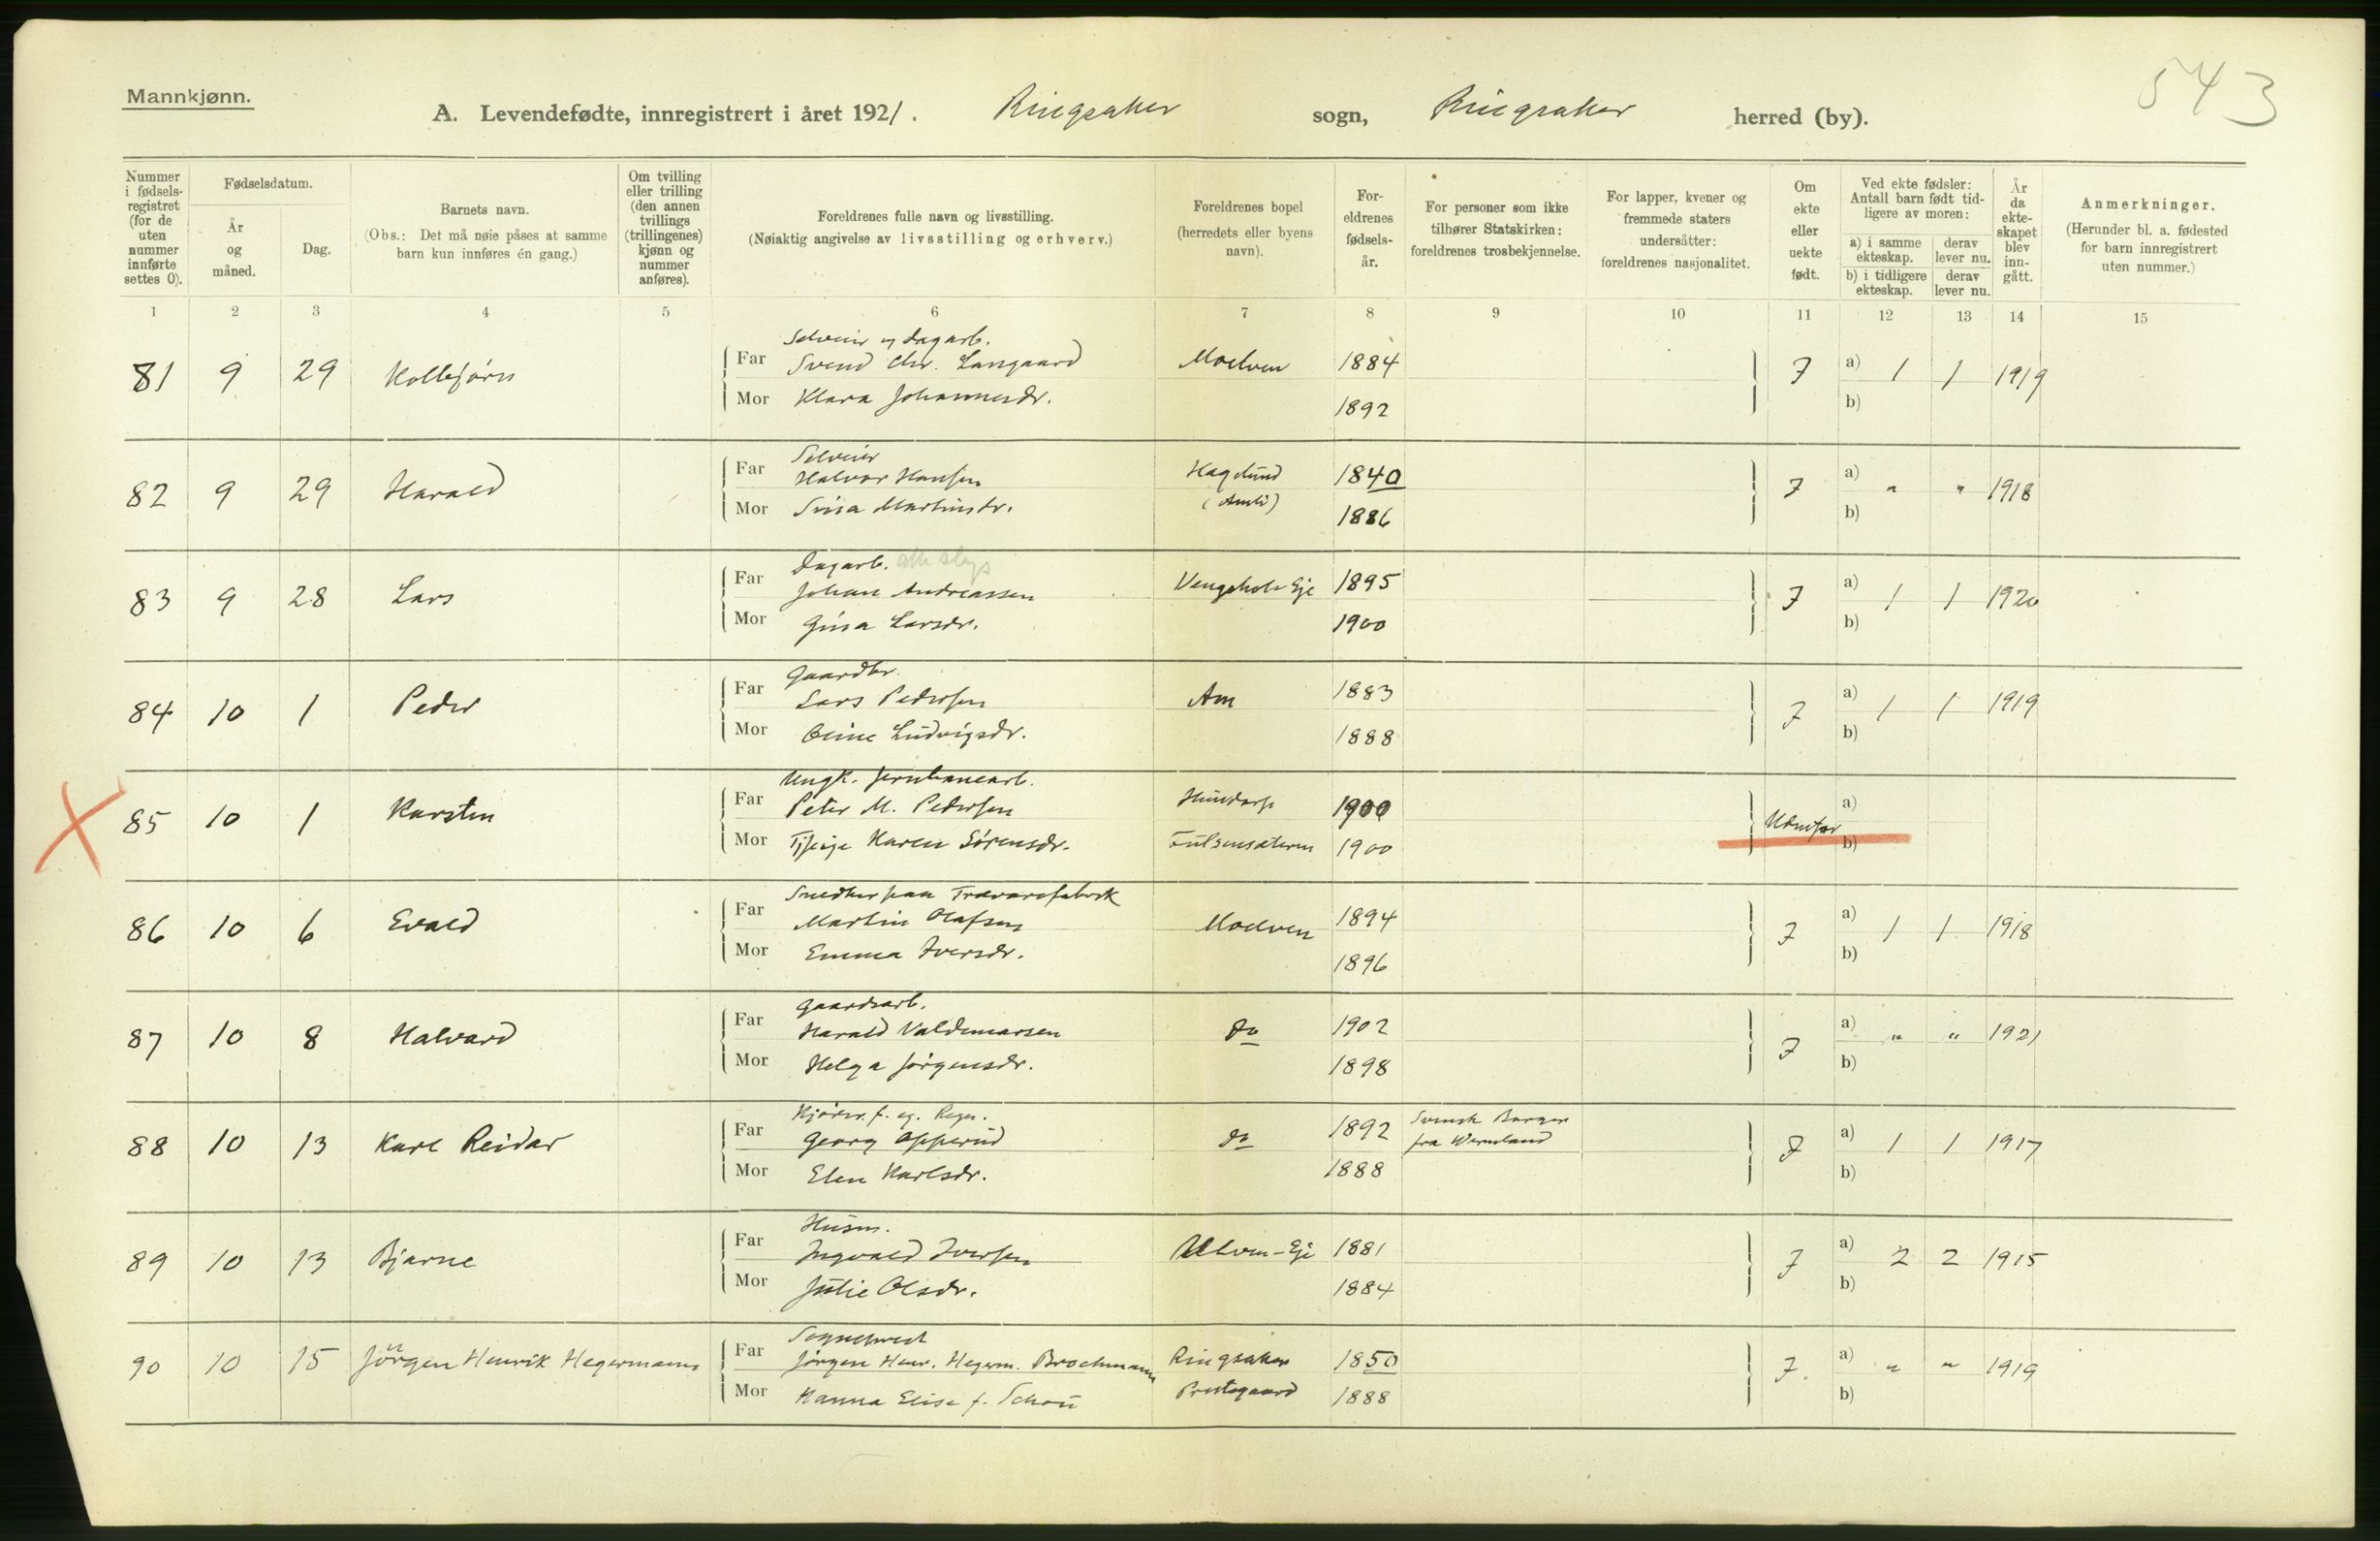 Mannkjønn.
543
A. Levendefødte, innregistrert i året 1921. Ringsaker sogn, Ringsaker herred (by).
Nummer i fødsels-registret (for de uten nummer innførte settes 0).
Fødselsdatum.
År og måned.
Dag.
Barnets navn.
(Obs.: Det må nøie påses at samme barn kun innføres én gang.)
Om tvilling eller trilling (den annen tvillings (trillingenes) kjønn og nummer anføres).
Foreldrenes fulle navn og livsstilling.
(Nøiaktig angivelse av livsstilling og erhverv.)
Foreldrenes bopel (herredets eller byens navn).
For-eldrenes fødsels-år.
For personer som ikke tilhører Statskirken: foreldrenes trosbekjennelse.
For lapper, kvener og fremmede staters undersåtter: foreldrenes nasjonalitet.
Om ekte eller uekte født.
Ved ekte fødsler: Antall barn født tid-ligere av moren:
a) i samme ekteskap. derav lever nu.
b) i tidligere ekteskap. derav lever nu.
År da ekte-skapet blev inn-gått.
Anmerkninger.
(Herunder bl. a. fødested for barn innregistrert uten nummer.)
1 2 3 4 5 6 7 8 9 10 11 12 13 14 15
Selveier og dagarb.
81 9 29 Kolbjørn Far Svend Chr. Langaard Moelven 1884 a) 1 1 1919
Mor Klara Johannesdr. 1892 b)
Selveier
82 9 29 Harald Far Halvor Hansen Haglund 1840 a) " " 1918
Mor Sina Martinsdr. 1886 b)
Dagarb.
83 9 28 Lars Far Johan Andreassen Eje 1895 a) 1 1 1920
Mor Gina Larsdr. 1900 b)
Gaardbr.
84 10 1 Peder Far Lars Pedersen Am 1883 a) 1 1 1919
Mor Oline Ludvigsdr. 1888 b)
Ungk. Jernbanearb.
85 10 1 Karsten Far Peter M. Pedersen 1900 a)
Mor Karen Sørensdr. 1900 b)
Snedker paa Trævarefabrik
86 10 6 Evald Far Martin Olafsen Moelven 1894 a) 1 1 1918
Mor Emma Iversdr. 1896 b)
Gaardsarb.
87 10 8 Halvard Far Harald Valdemarsen do 1902 a) " " 1921
Mor Helga Jørgensdr. 1898 b)
88 10 13 Karl Reidar Far Georg Opperud do 1892 Svensk Borger fra Wermland a) 1 1 1917
Mor Elen Karlsdr. 1888 b)
Husm.
89 10 13 Bjarne Far Ingvald Iversen Ulven-Eje 1881 a) 2 2 1915
Mor Julie Olsdr. 1884 b)
Sogneprest
90 10 15 Jörgen Henrik Hegermann Far Jörgen Henr. Hegerm. Brochmann Ringsaker 1850 a) " " 1919
Mor Hanna Elise f. Schou Prestegaard 1888 b)